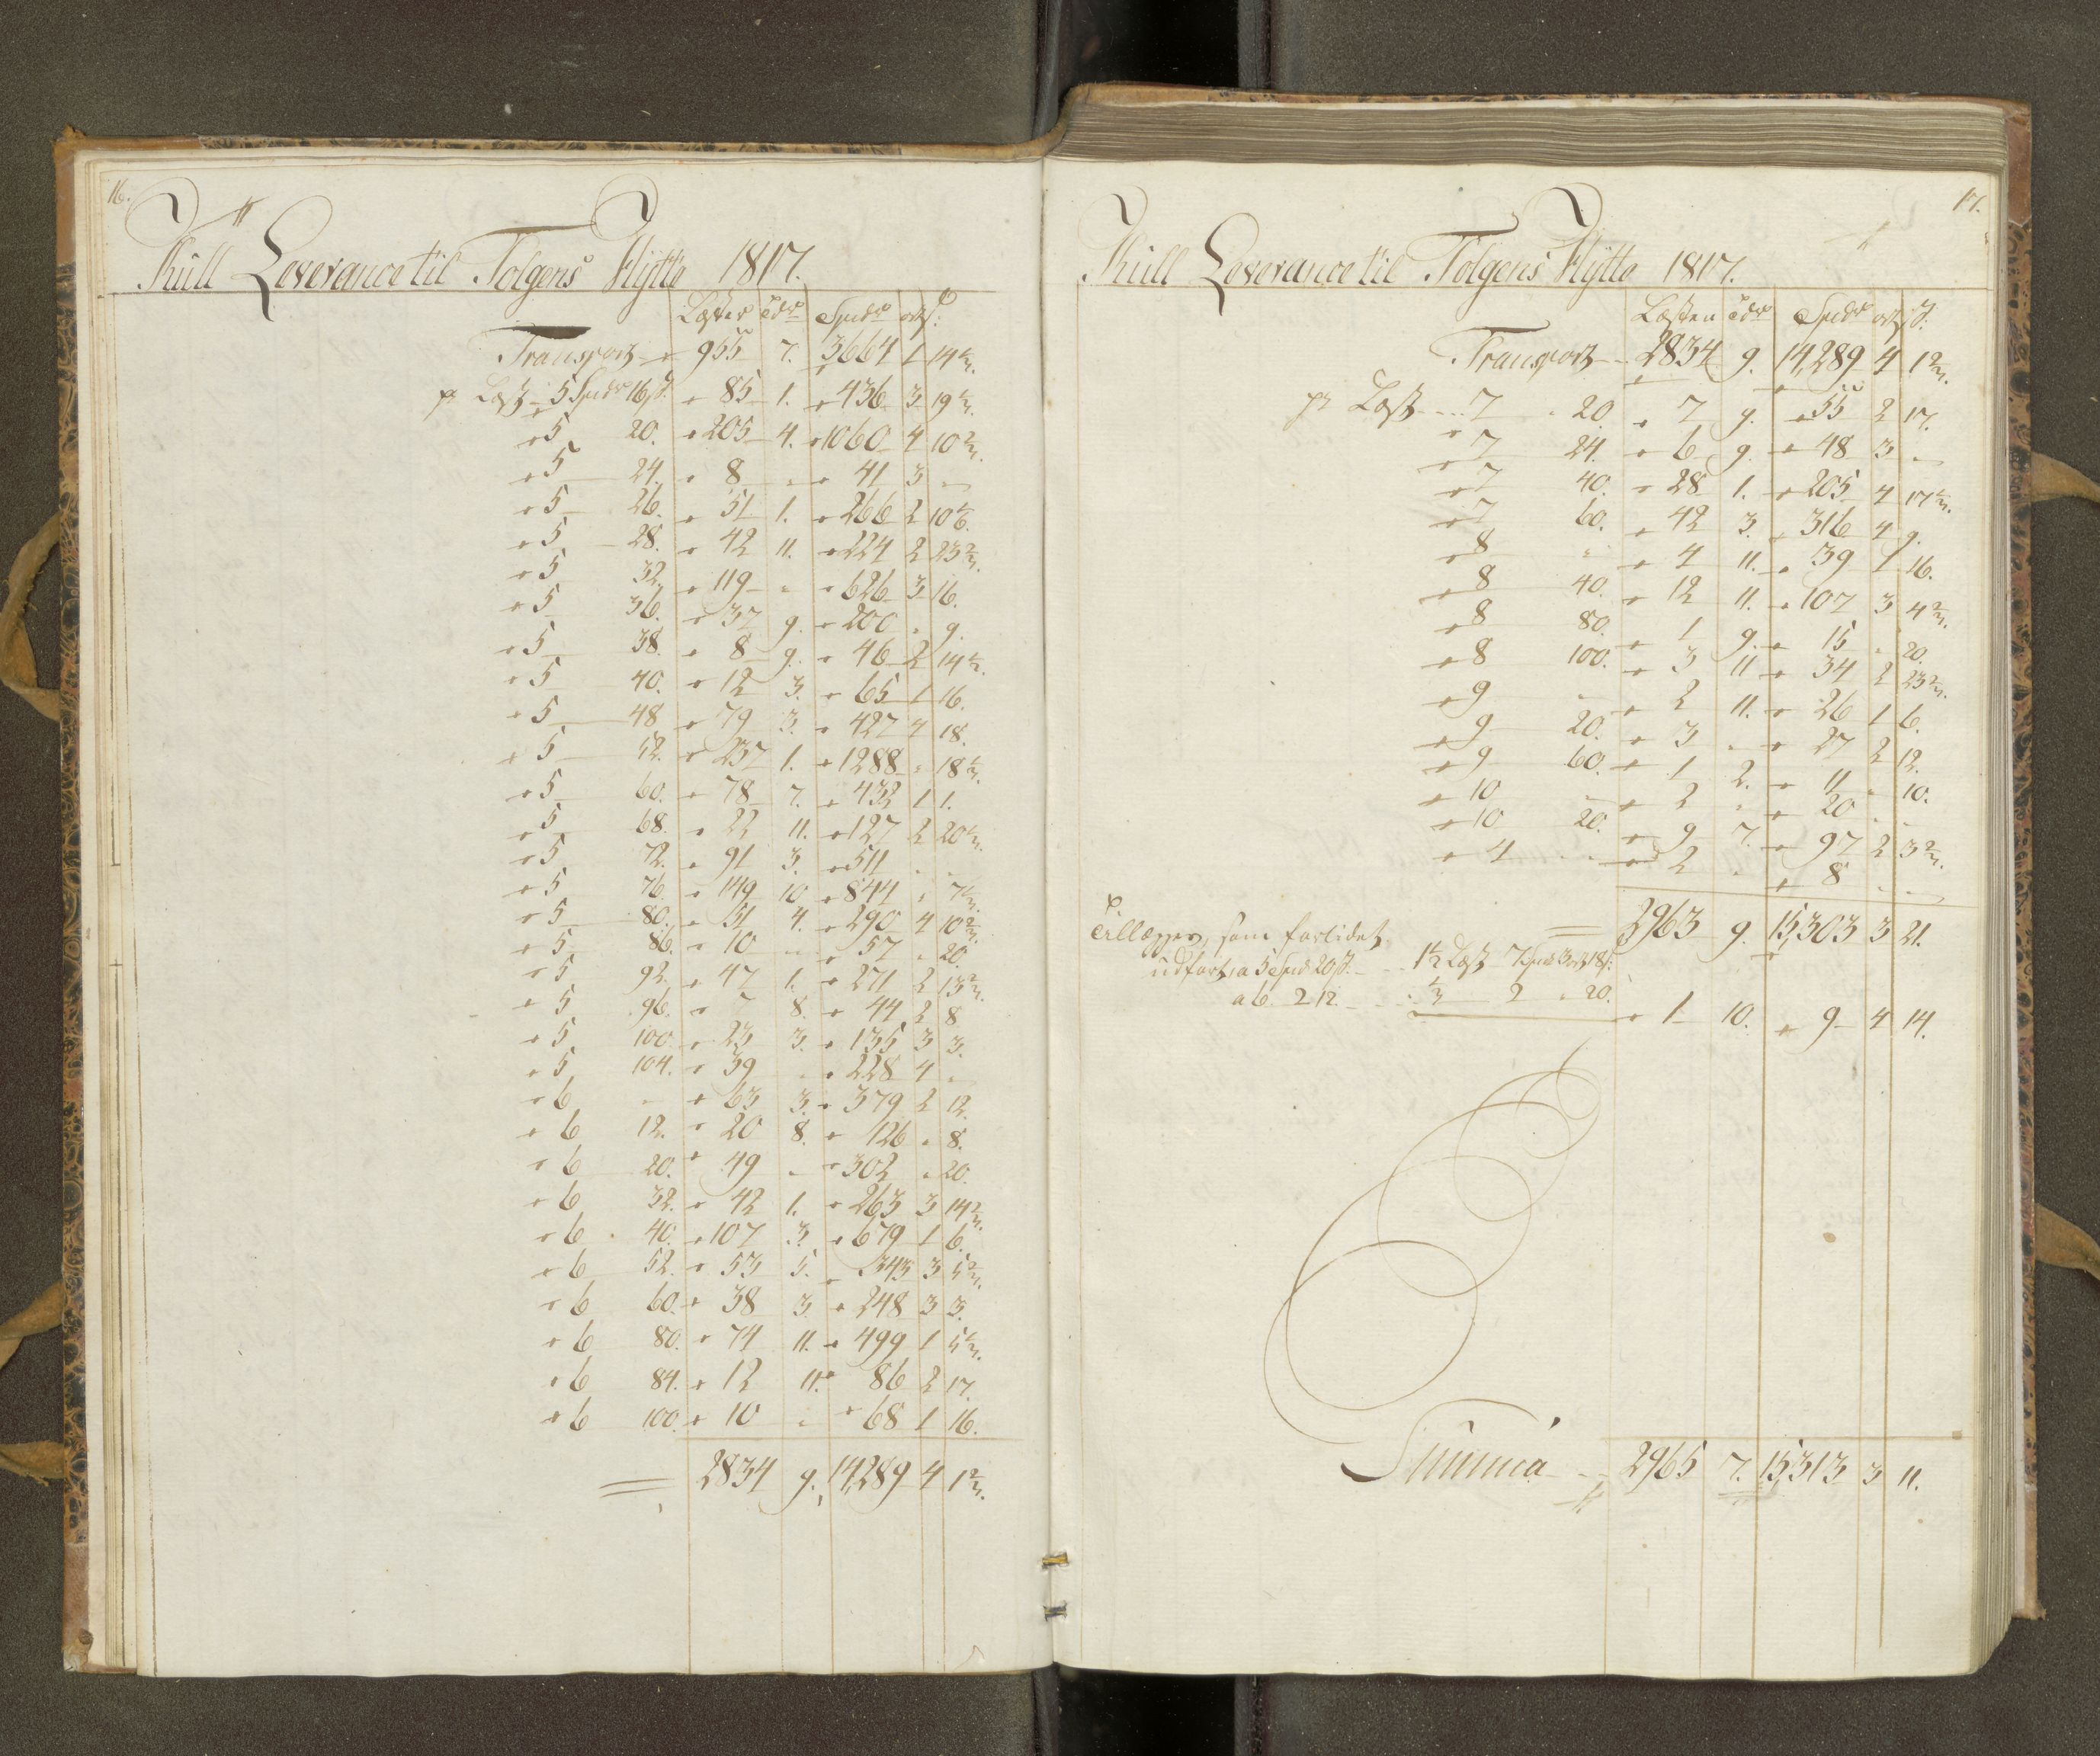 16.
Kull Leverance til Tolgens Hÿtte 1817.
Læster Tdr Spcdr ort ß.
Transport 955 7. 3664 1 14 2/3.
pr Læst 5 Spcdr 16 ß. 85 1. 436 3 19 1/3.
5 20. 205 4. 1060 4 10 2/3.
5 24. 8 " 41 3 "
5 26. 51 1. 266 2 10 1/6.
5 28. 42 11. 224 2 23 2/3.
5 32. 119 " 626 3 16.
5 36. 37 9. 200 " 9.
5 38. 8 9. 46 2 14 1/2.
5 40. 12 3. 65 1 16.
5 48 79 3. 427 4 18.
5 52. 237 1. 1288 " 18 1/3.
5 60. 78 7. 432 1 1.
5 68. 22 11. 127 2 20 1/3.
5 72. 91 3. 511 " "
5 76. 149 10 844 " 7 1/3.
5 80. 51 4. 290 4 10 2/3.
5 86. 10 " 57 " 20.
5 92. 47 1. 271 2 13 2/3.
5 96. 7 8. 44 2 8
5 100. 23 3. 135 3 3.
5 104. 39 " 228 4 "
6 " 63 3. 379 2 12.
6 12. 20 8. 126 " 8.
6 20. 49 " 302 " 20.
6 32. 42 1. 263 3 14 2/3.
6 40. 107 3. 679 1 6.
6 52. 53 5. 343 3 5 2/3.
6 60. 38 3 248 3 3.
6 80. 74 11. 499 1 5 1/3.
6 84. 12 11. 86 2 17.
6 100. 10 " 68 1 16.
2834 9. 14,289 4 1 2/3.
17.
Kull Leverance til Tolgens Hÿtte 1817.
Læsten Tdr Spcdr ort ß.
Transport 2834 9. 14,289 4 1 2/3.
pr Læst 7 20. 7 9. 55 2 17.
7 24. 6 9. 48 3 "
7 40. 28 1. 205 4 17 1/3.
7 60. 42 3. 316 4 9.
8 " 4 11. 39 1 16.
8 40. 12 11. 107 3 4 2/3.
8 80. 1 9. 15 " 20.
8 100. 3 11 34 2 23 2/3.
9 " 2 11. 26 1 6.
9 20. 3 " 27 2 12.
9 60. 1 2. 11 " 10.
10 " 2 " 20 " "
10 20. 9 7. 97 2 3 2/3.
4 " 2 " 8 " "
2963 9. 15,303 3 21.
Tillægges, som forlidet
udført, a 5 Spd 20 ß. 1 1/2 Læst 7 Spd 3 ort 18 ß.
a 6. 2 12. 1/3 2 " 20. 1 10. 9 4 14.
Summa 2965 7. 15,313 3 11.